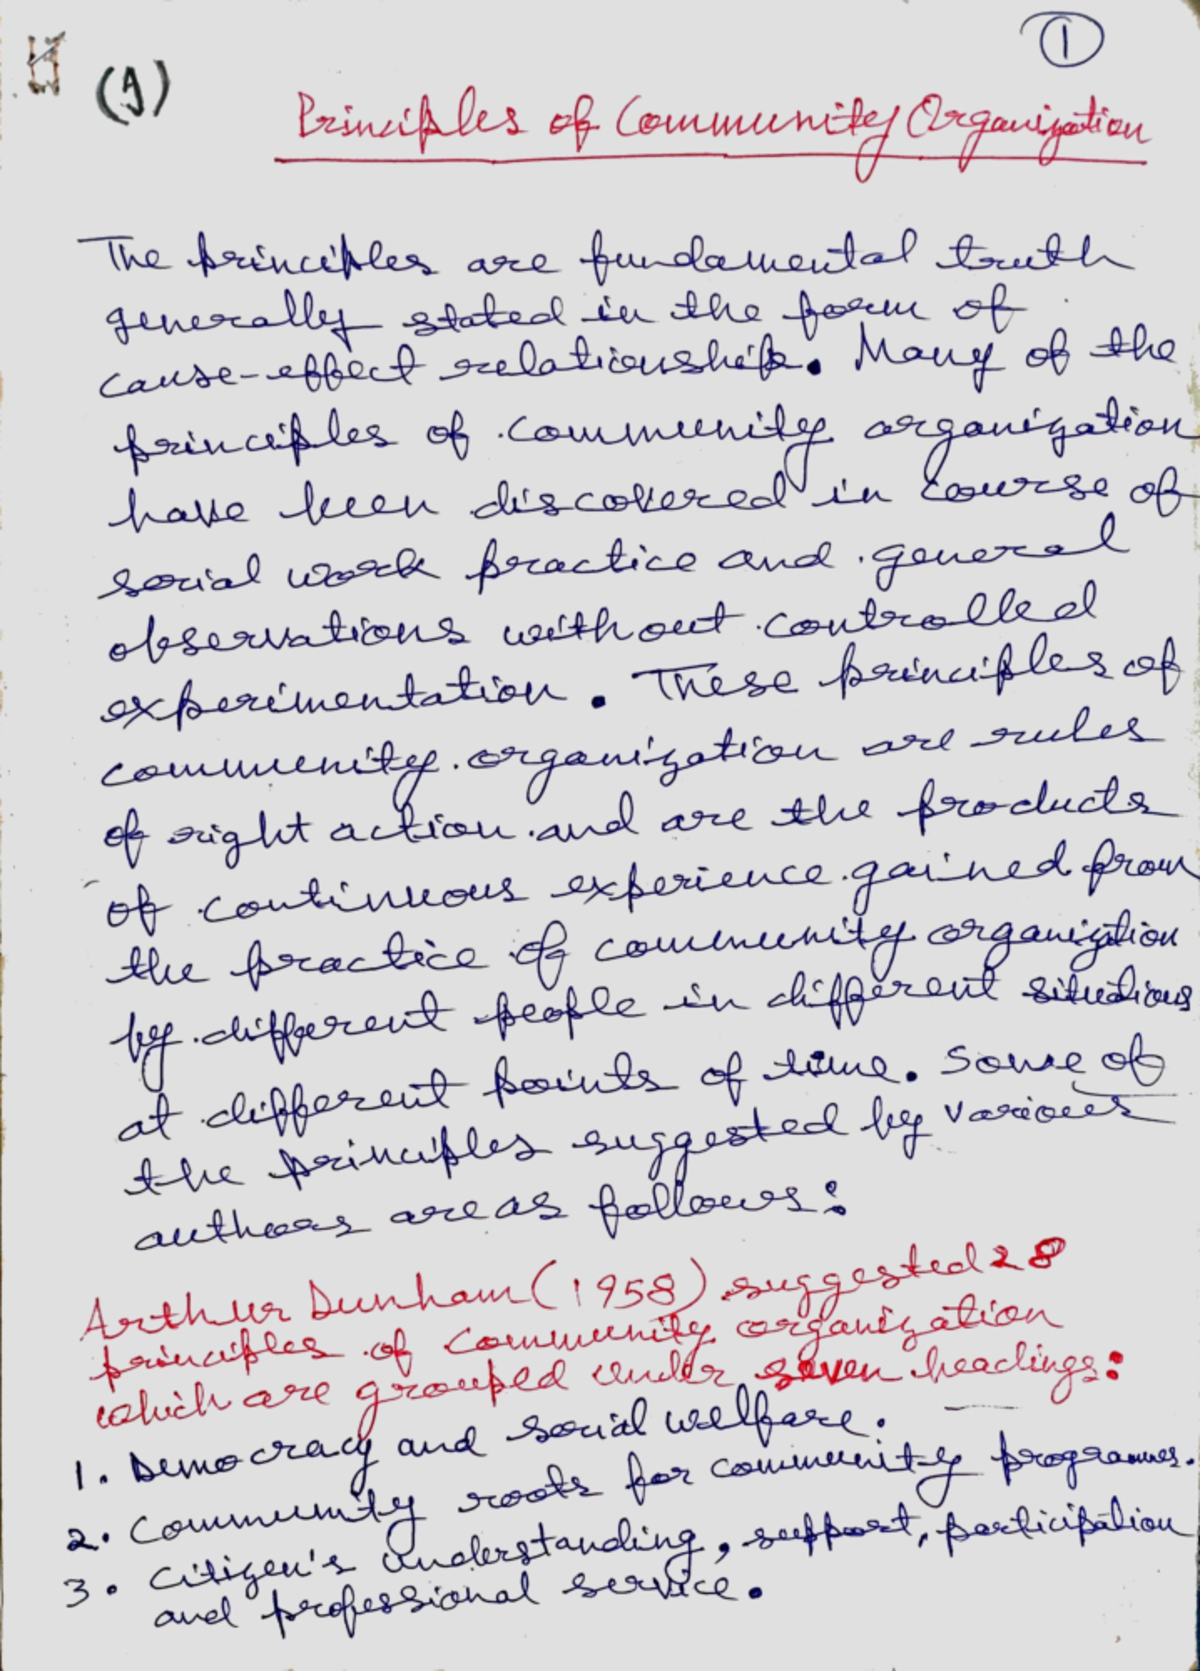 1
(g)
Principles of Community Organization
The principles are fundamental truth
generally stated in the form of
cause-effect relationship. Many of the
principles of community organization
have been discovered in course of
social work practice and general
observations without controlled
experimentation. These principles of
community organization are rules
of right action and are the products
of continuous experience gained from
the practice of community organization
by different people in different situations
at different points of time. Some of
the principles suggested by various
authors are as follows:
Arthur Dunham (1958) suggested 28
principles of community organization
which are grouped under seven headings:
1. Democracy and social welfare.
2. Community roots for community programmes.
3. Citizen's understanding, support, participation
and professional service.